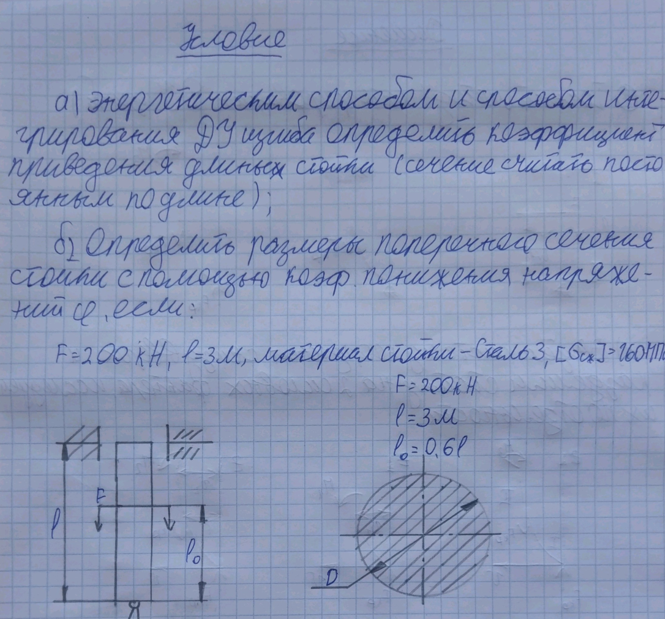 Условие
а) Энергетическим способом и способом инте-
грирования ДУ изгиба определить коэффициент
приведения длины стойки (сечение считать посто
янным по длине);
б) Определить размеры поперечного сечения
стойки с помощью коэф. понижения напряже-
ний φ, если:
F=200 кН, l=3м, материал стойки - Сталь 3, [Gсж]=160МПа
F=200кН
l=3м
l₀=0,6l
F
l
l₀
D